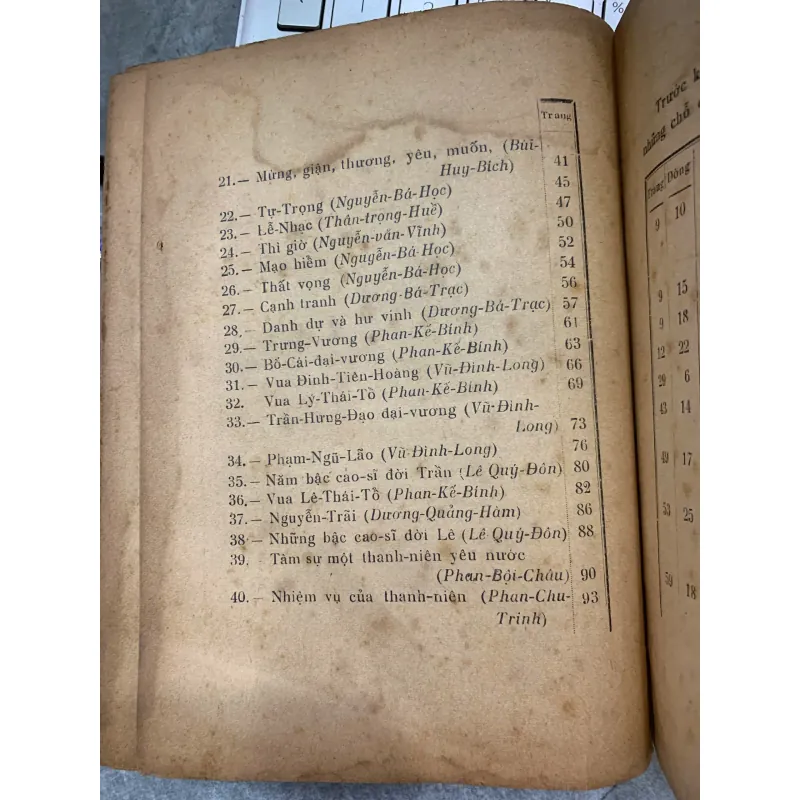 Trang
21.— Mừng, giận, thương, yêu, muốn, (Bùi-
Huy-Bích) 41
22.— Tự-Trọng (Nguyễn-Bá-Học) 45
23.— Lễ-Nhạc (Thân-trọng-Huề) 47
24.— Thì giờ (Nguyễn-văn-Vĩnh) 50
25.— Mạo hiểm (Nguyễn-Bá-Học) 52
26.— Thất vọng (Nguyễn-Bá-Học) 54
27.— Cạnh tranh (Dương-Bá-Trạc) 56
28.— Danh dự và hư vinh (Dương-Bá-Trạc) 57
29.— Trưng-Vương (Phan-Kế-Bính) 61
30.— Bố-Cái-đại-vương (Phan-Kế-Bính) 63
31.— Vua Đinh-Tiên-Hoàng (Vũ-Đình-Long) 66
32. Vua Lý-Thái-Tổ (Phan-Kế-Bính) 69
33.— Trần-Hưng-Đạo đại-vương (Vũ-Đình-
Long) 73
34.— Phạm-Ngũ-Lão (Vũ-Đình-Long) 76
35.— Năm bậc cao-sĩ đời Trần (Lê Quý-Đôn) 80
36.— Vua Lê-Thái-Tổ (Phan-Kế-Bính) 82
37.— Nguyễn-Trãi (Dương-Quảng-Hàm) 86
38— Những bậc cao-sĩ đời Lê (Lê Quý-Đôn) 88
39. Tâm sự một thanh-niên yêu nước
(Phan-Bội-Châu) 90
40.— Nhiệm vụ của thanh-niên (Phan-Chu- 93
Trinh)
Trước
những chỗ
Trang Dòng
9 10
9 15
9 18
12 22
29 6
43 14
49 17
53 25
59 18
1
2
%